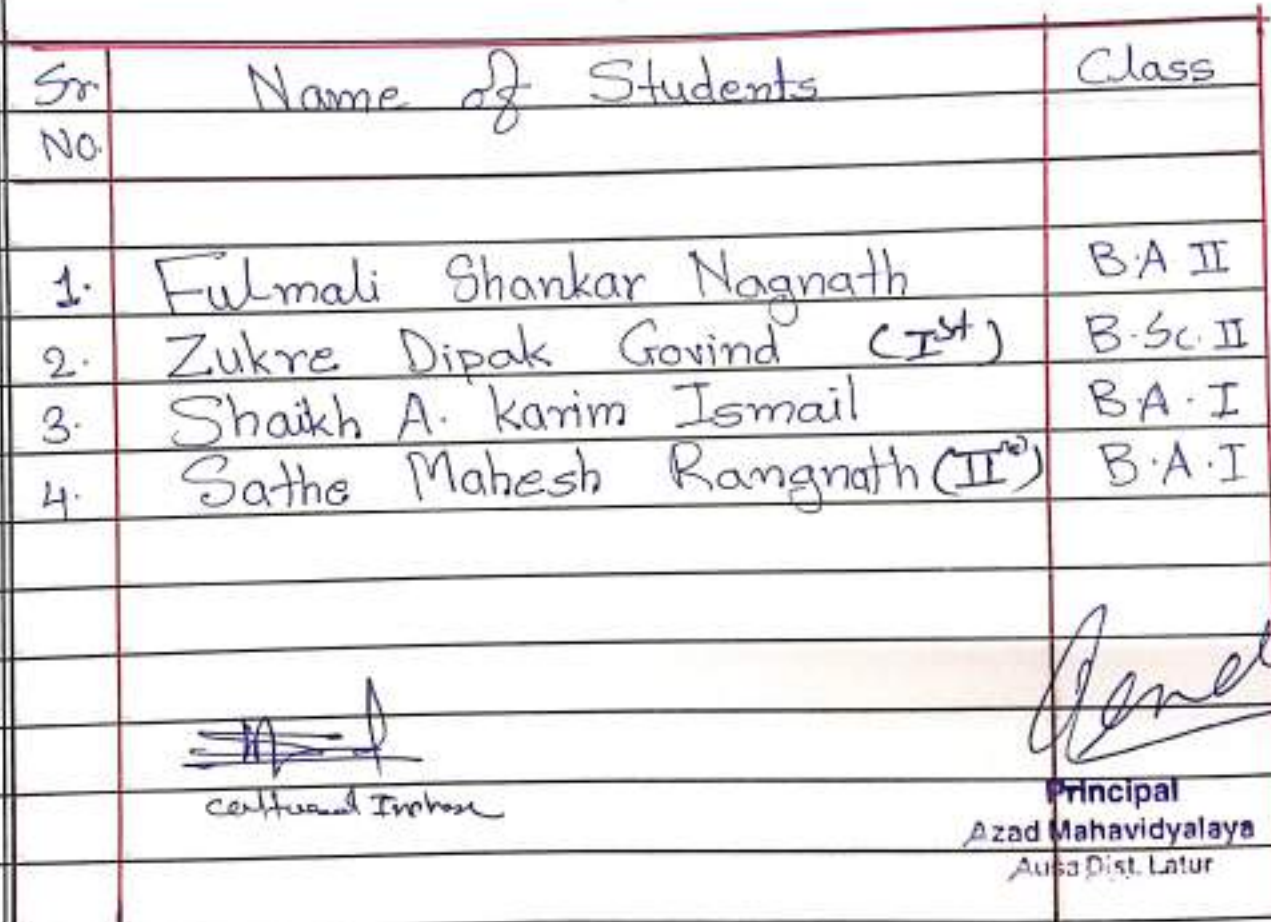 Sr. Name of Students Class
No.
1. Fulmali Shankar Nagnath B.A II
2. Zukre Dipak Govind (Ist) B.Sc. II
3. Shaikh A. karim Ismail B.A. I
4. Sathe Mahesh Rangnath (IInd) B.A. I
Principal
Azad Mahavidyalaya
Ausa Dist. Latur